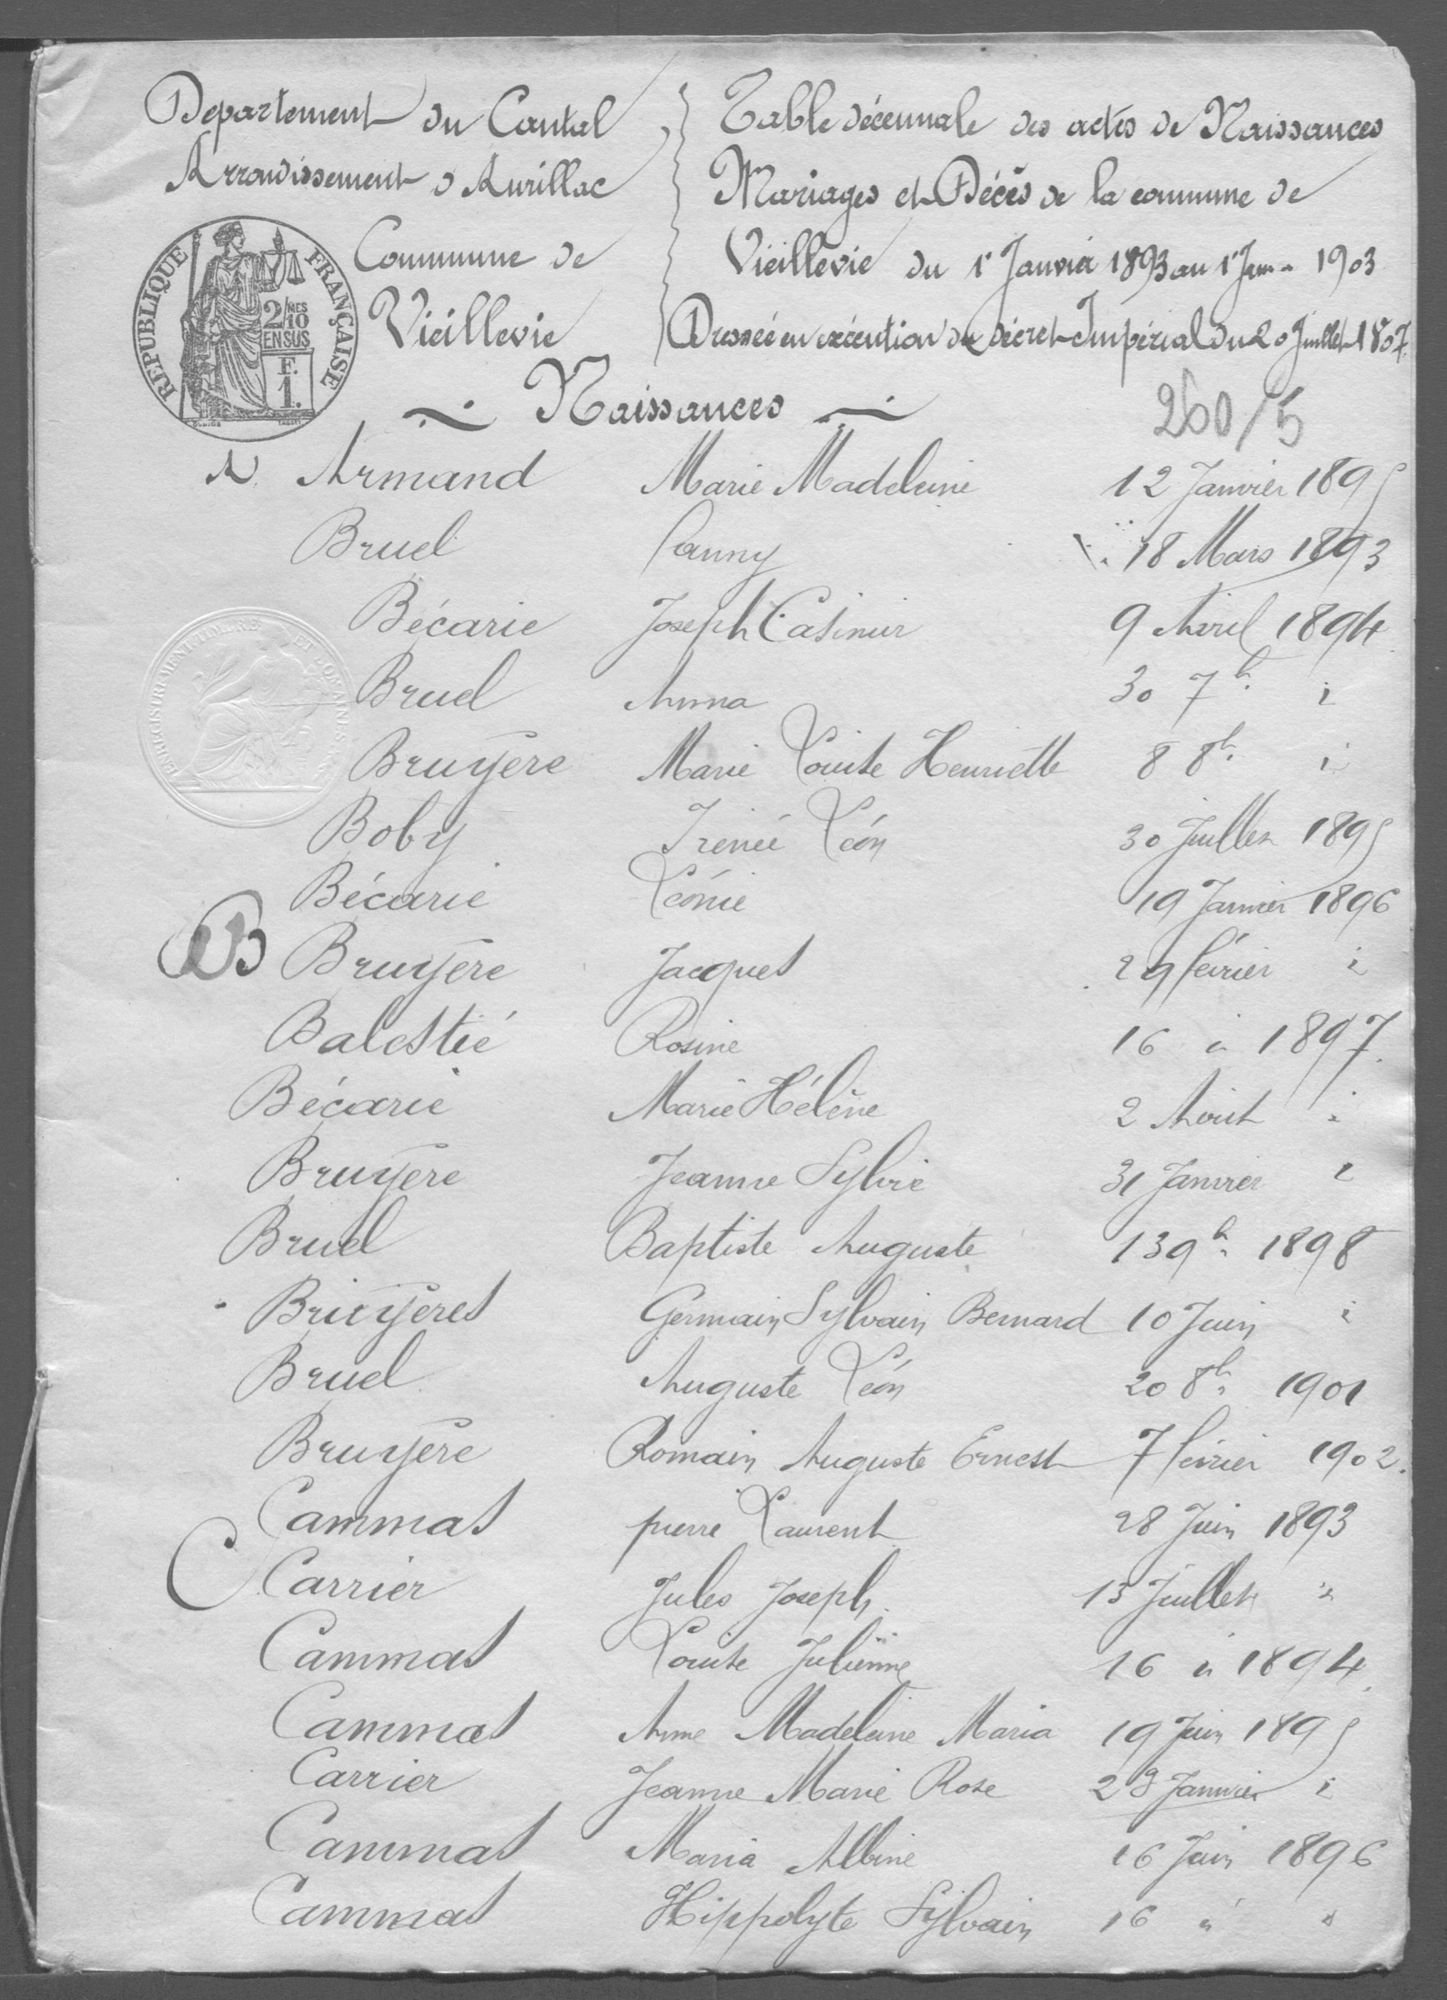 Département du Cantal
Arrondissement d'Aurillac
Commune de
Vieillevie
Table décennale des actes de Naissances
Mariages et Décès de la commune de
Vieillevie du 1r Janvier 1893 au 1r Janr 1903
Dressée en exécution du décret Impérial du 20 Juillet 1807.
REPUBLIQUE FRANÇAISE
2/10 MES
EN SUS
F.
1.
Naissances
260/5
A. Armand Marie Madeleine 12 Janvier 1895
Bruel fanny 18 Mars 1893
ENREGISTREMENT TIMBRE ET DOMAINES
Bécarie Joseph Casimir 9 Avril 1894
Bruel Anna 30 7b. i
Bruyère Marie Louise Henriette 8 8b. i
Boby Irénée Léon 30 Juillet 1895
Bécarie Léonie 19 Janvier 1896
B Bruyère Jacques 29 février i
Balestié Rosine 16 i 1897.
Bécarie Marie Hélène 2 Août i
Bruyère Jeanne Sylvie 31 Janvier i
Bruel Baptiste Auguste 13 9b. 1898
Bruyères Germain Sylvain Bernard 10 Juin i
Bruel Auguste Léon 20 8b. 1901
Bruyère Romain Auguste Ernest 7 février 1902.
Cammas pierre Laurent 28 Juin 1893
C Carrier Jules Joseph. 13 Juillet "
Cammas Louise Julienne 16 i 1894
Cammas Anne Madeleine Maria 19 Juin 1895
Carrier Jeanne Marie Rose Janvier i
Cammas Maria Albine 16 Juin 1896
Cammas Hippolyte Sylvain 16 " "